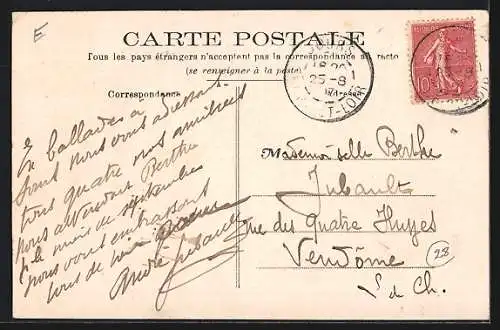 E
CARTE POSTALE
Tous les pays étrangers n'acceptent pas la correspondance au recto
(se renseigner à la poste)
18 30
25-8
ET-LOIR
10
Correspondance
En ballades à
nous vous adressons
tous quatre nos amitiés
nous attendons Berthe
le mois de septembre
nous vous embrassons
tous de
André Jubault
Mademoiselle Berthe
Jubault
rue des Quatre Huyes
Vendôme
L & Ch.
28